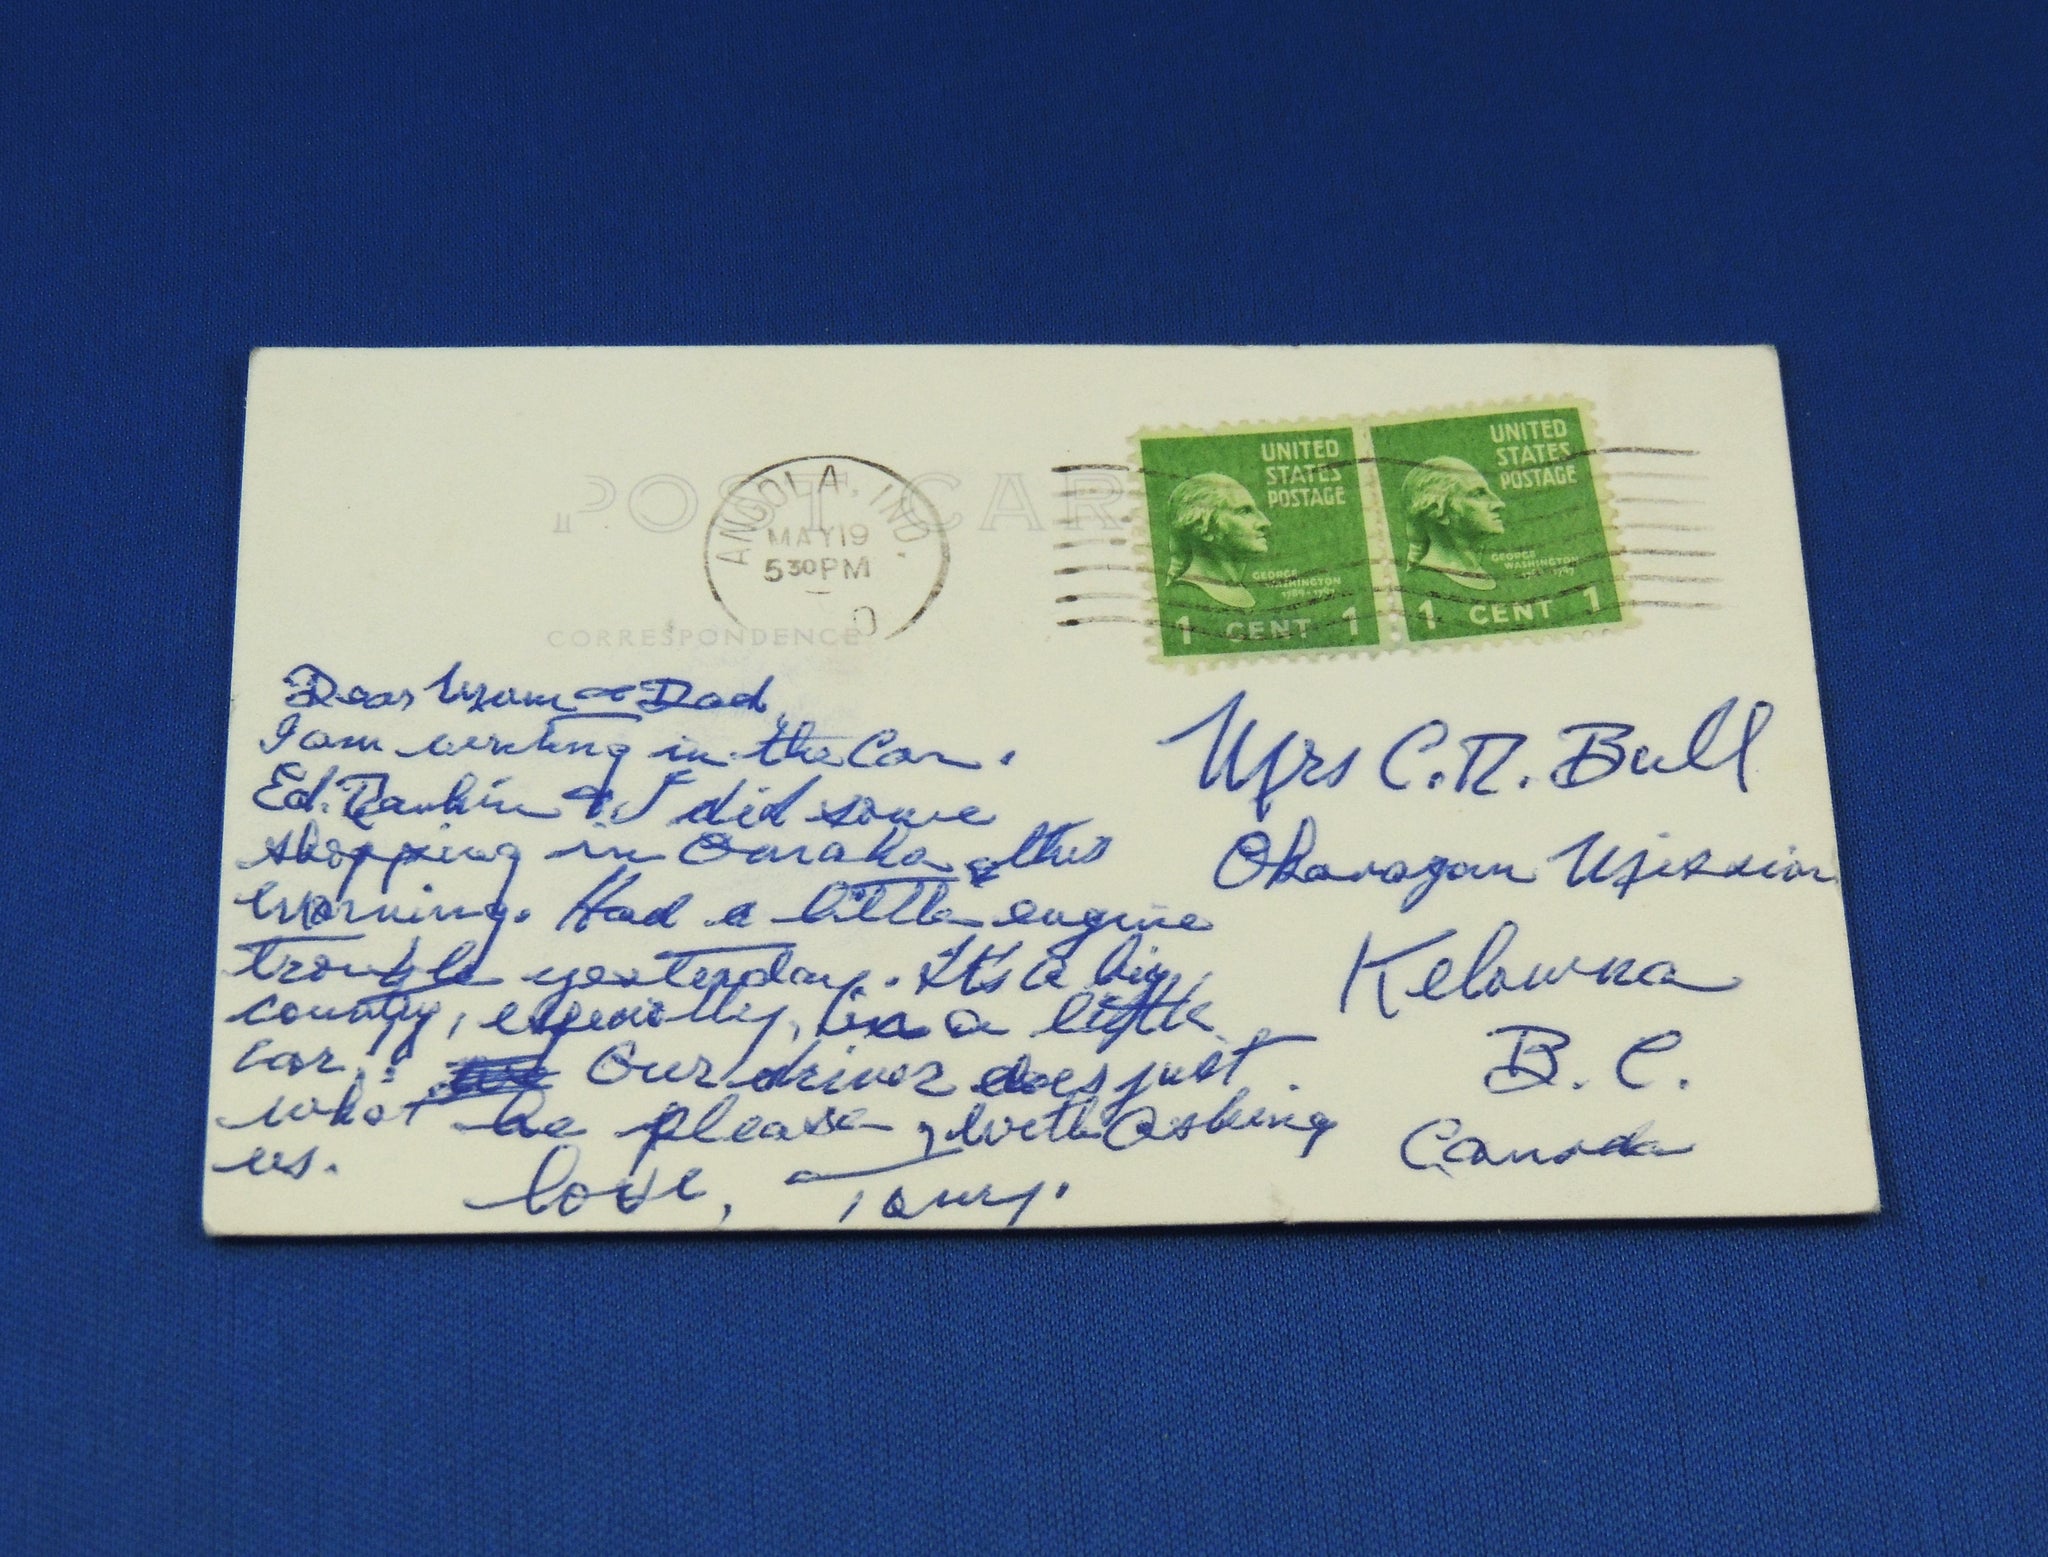 POST CAR
ANGOLA, IND.
MAY 19
5 30 PM
0
CORRESPONDENCE
UNITED
STATES
POSTAGE
GEORGE
WASHINGTON
1789-1797
1 CENT 1
UNITED
STATES
POSTAGE
GEORGE
WASHINGTON
1789-1797
1 CENT 1
Dear Mom & Dad,
I am writing in the Car.
Ed. Rankin & I did some
shopping in Omaha this
morning. Had a little engine
trouble yesterday. It's a big
country, especially, in a little
car. Our driver does just
what he please, with asking
us.
love, Tony.
Mrs C. R. Bull
Okanagan Mission
Kelowna
B. C.
Canada